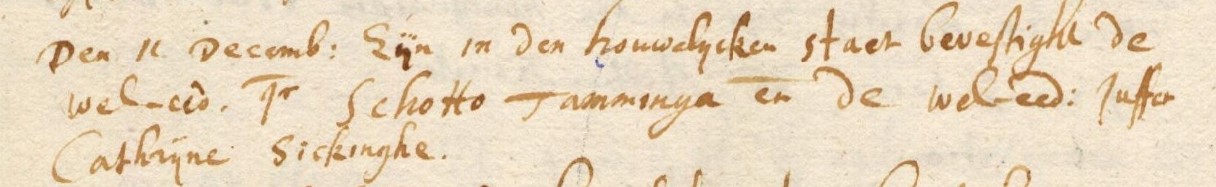 Den 11 Decemb: Zijn in den houwelycken staet bevestight de
wel-eed. Jr Schotto Tamminga en de wel-eed: Juffer
Cathrijne Sickinghe.